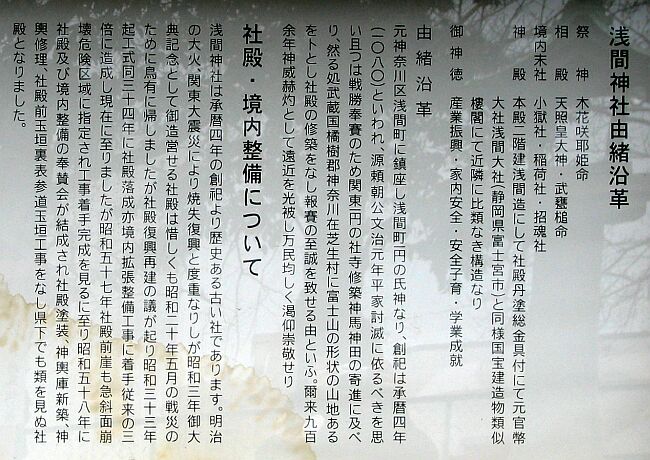 浅間神社由緒沿革
祭神 木花咲耶姫命
相殿 天照皇大神・武甕槌命
境内末社 小嶽社・稲荷社・招魂社
神殿 本殿二階建浅間造にして社殿丹塗総金具付にて元官幣
大社浅間大社(静岡県富士宮市)と同様国宝建造物類似
楼閣にて近隣に比類なき構造なり
御神徳 産業振興・家内安全・安全子育・学業成就
由緒沿革
元神奈川区浅間町に鎮座し浅間町一円の氏神なり、創祀は承暦四年
(一〇八〇)といわれ、源頼朝公文治元年平家討滅に依るべきを思
い且つは戦勝奉賽のため関東一円の社寺修築神馬神田の寄進に及べ
り、然る処武蔵国橘樹郡神奈川在芝生村に富士山の形状の山地ある
を卜とし社殿の修築をなし報賽の至誠を致せる由といふ。爾来九百
余年神威赫灼として遠近を光被し万民均しく渇仰崇敬せり
社殿・境内整備について
浅間神社は承暦四年の創祀より歴史ある古い社であります。明治
の大火、関東大震災により焼失復興と度重なりしが昭和三年御大
典記念として御造営せる社殿は惜しくも昭和二十年五月の戦災の
ために烏有に帰しましたが社殿復興再建の議が起り昭和三十三年
起工式同三十四年に社殿落成亦境内拡張整備工事に着手従来の三
倍に造成し現在に至りましたが昭和五十七年社殿前崖も急斜面崩
壊危険区域に指定され工事着手完成を見るに至り昭和五十八年に
社殿及び境内整備の奉賛会が結成され社殿塗装、神輿庫新築、神
輿修理、社殿前玉垣裏表参道玉垣工事をなし県下でも類を見ぬ社
殿となりました。